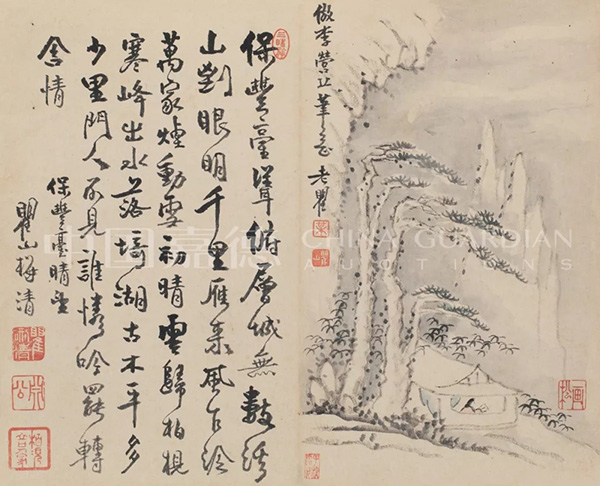 倣李營丘筆意 老瞿
保豐臺聳俯層城無數
山到眼明千里雁來風乍
萬家煙動雪初晴雲歸柏梘
寒峰出水落湖古木平多
少里門人不見誰憐吟罷轉
含情
保豐臺晴望
瞿山梅清
中国嘉德 CHINA GUARDIAN
AUCTIONS